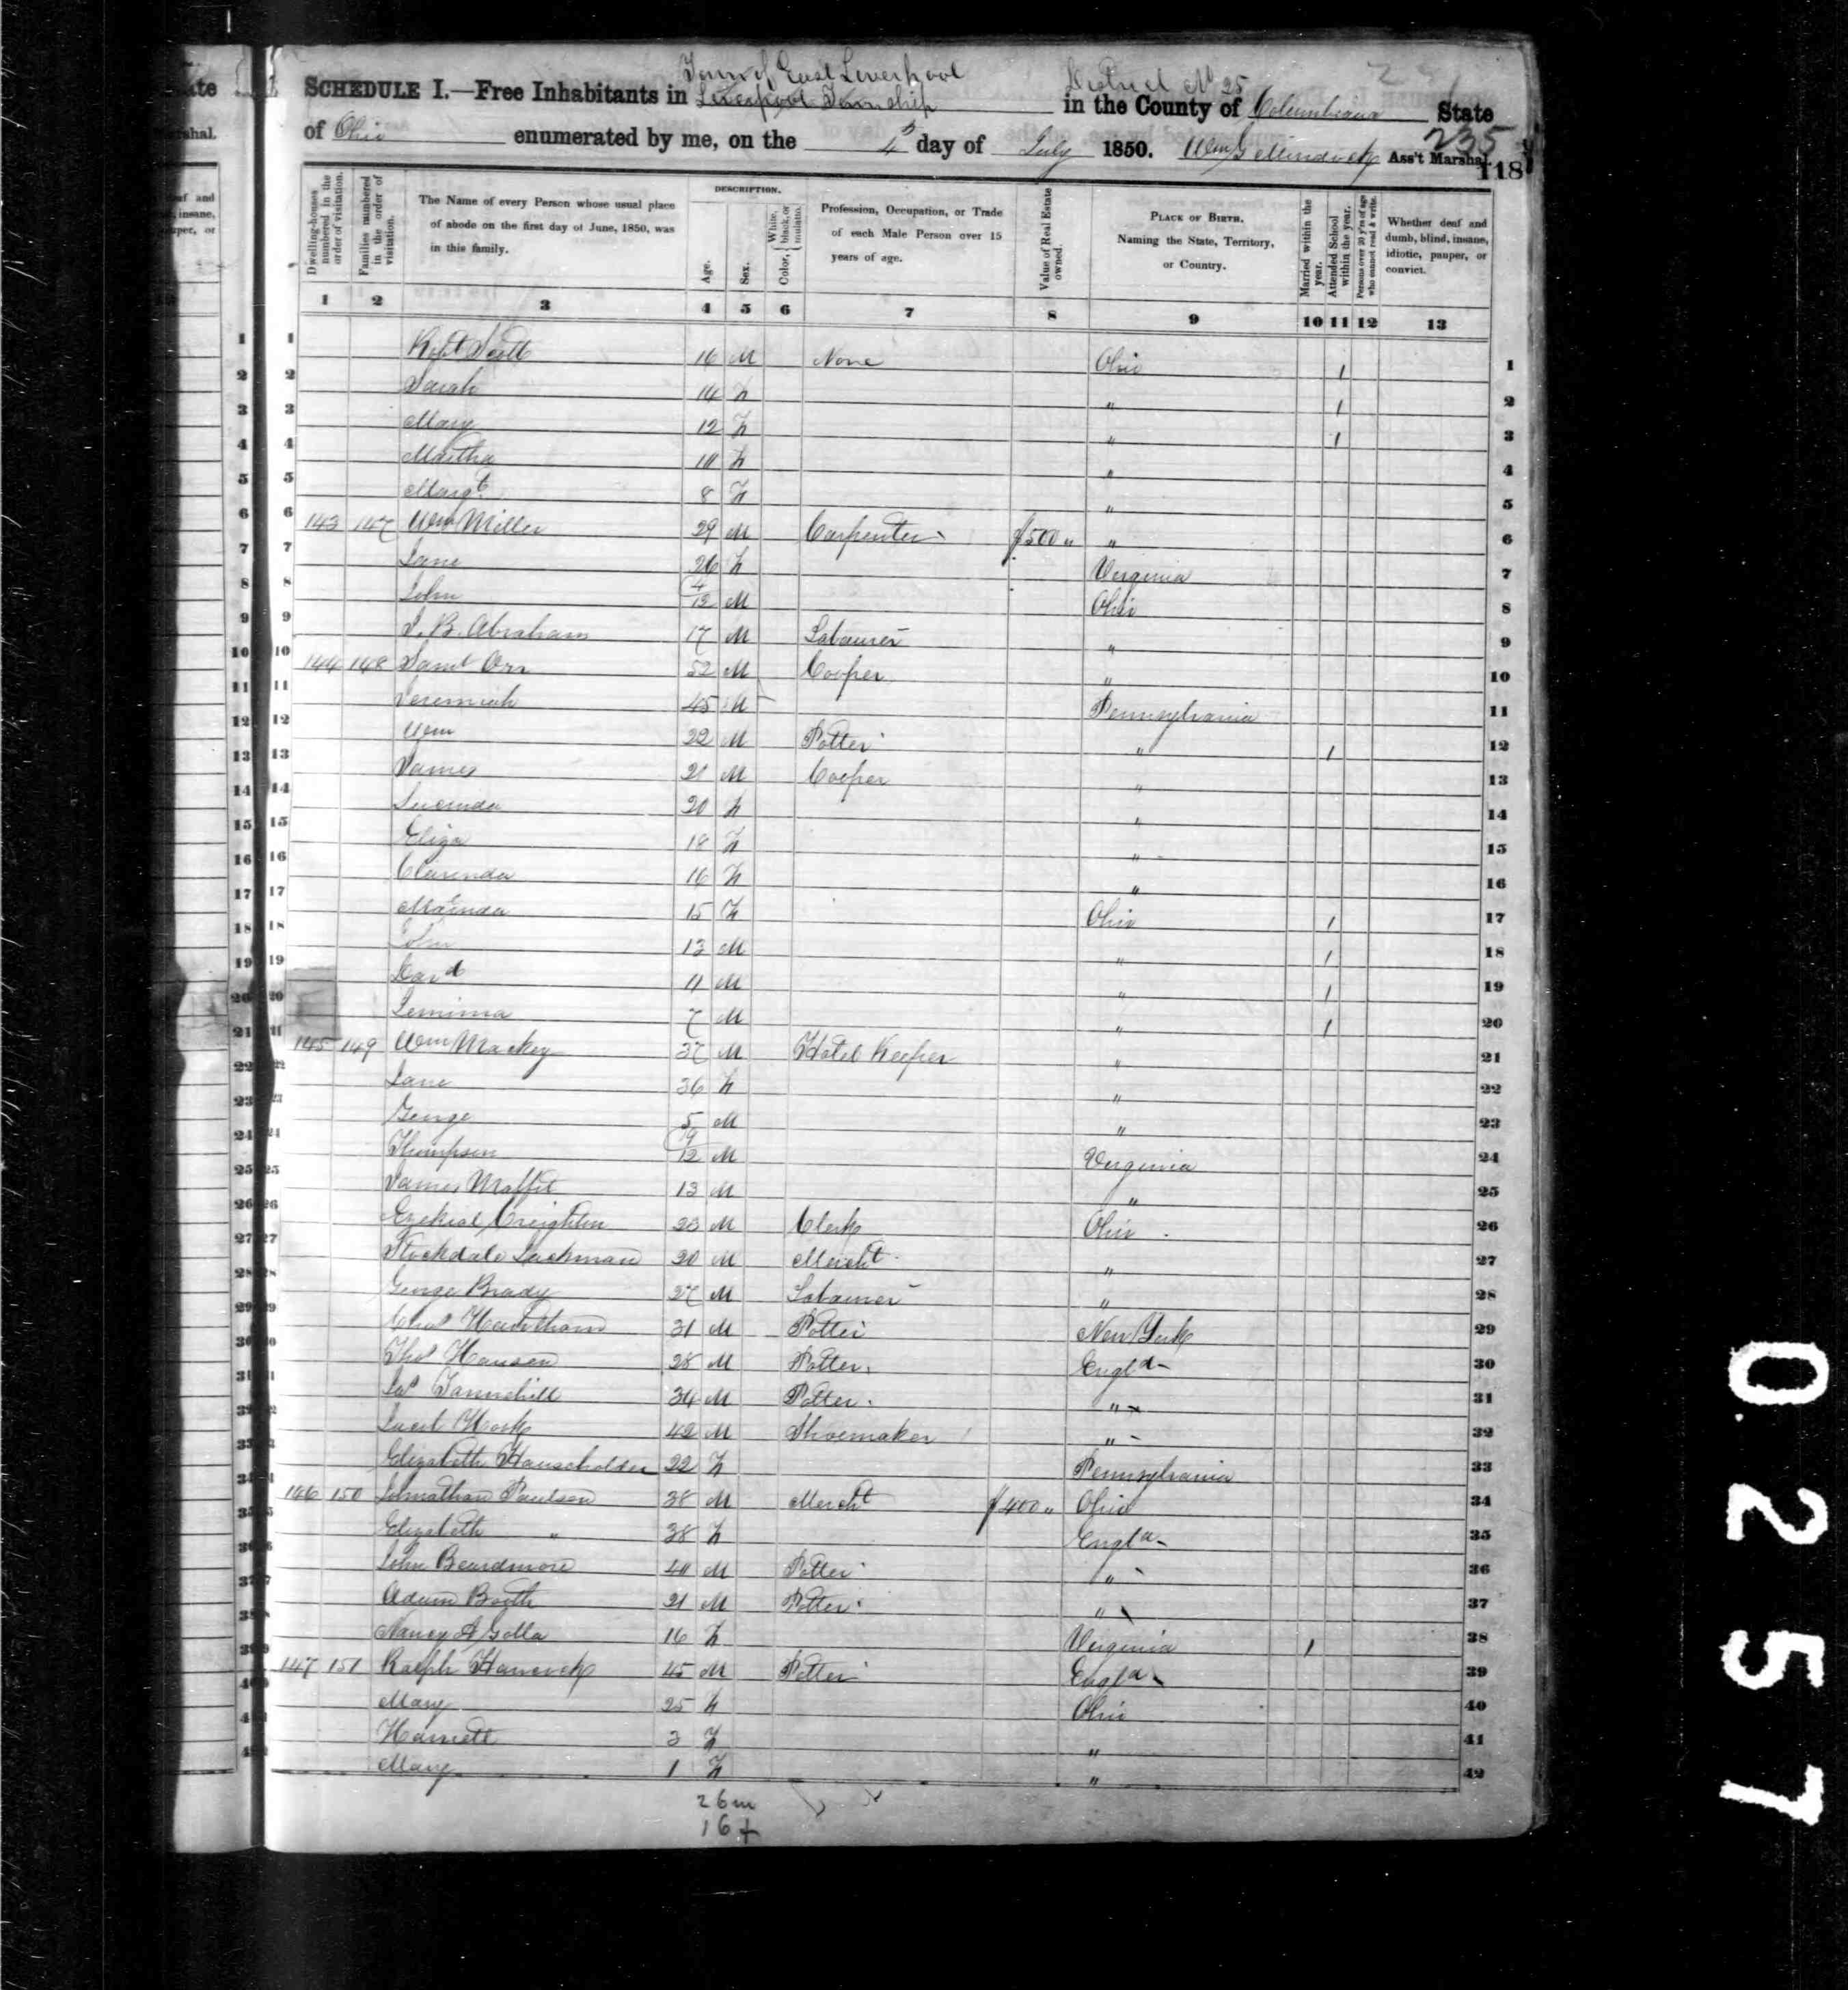 Town of East Liverpool District No 25
SCHEDULE I.—Free Inhabitants in Liverpool Township in the County of Columbiana State
of Ohio enumerated by me, on the 4 day of July 1850. Wm G Ass't Marshal.
235
118
Dwelling-houses numbered in the order of visitation.
Families numbered in the order of visitation.
The Name of every Person whose usual place of abode on the first day of June, 1850, was in this family.
DESCRIPTION.
Age.
Sex.
Color, White, black, or mulatto.
Profession, Occupation, or Trade of each Male Person over 15 years of age.
Value of Real Estate owned.
PLACE OF BIRTH. Naming the State, Territory, or Country.
Married within the year.
Attended School within the year.
Persons over 20 y'rs of age who cannot read & write.
Whether deaf and dumb, blind, insane, idiotic, pauper, or convict.
1 2 3 4 5 6 7 8 9 10 11 12 13
1 Robt Scott 16 M None Ohio 1 1
2 Sarah 14 F " 1 2
3 Mary 12 F " 1 3
4 Martha 10 F " 4
5 Margt 8 F " 5
6 143 147 Wm Miller 29 M Carpenter $500 " " 6
7 Jane 26 F Virginia 7
8 John 4/12 M Ohio 8
9 J. B. Abraham 17 M Labourer " 9
10 144 148 Saml Orr 52 M Cooper " 10
11 Jeremiah 45 M Pennsylvania 11
12 Wm 22 M Potter " 1 12
13 James 21 M Cooper " 13
14 Lucinda 20 F " 14
15 Eliza 18 F " 15
16 Clarinda 16 F " 16
17 Marinda 15 F Ohio 1 17
18 John 13 M " 1 18
19 Davd 11 M " 1 19
20 Jemima 7 M " 1 20
21 145 149 Wm Mackey 37 M Hotel Keeper " 21
22 Jane 36 F " 22
23 George 5 M " 23
24 Thompson 9/12 M Virginia 24
25 James Moffit 13 M " 25
26 Ezekial Creighton 23 M Clerk Ohio 26
27 Stockdale Jackman 20 M Mercht " 27
28 George Brady 27 M Labourer " 28
29 Chas 31 M Potter New York 29
30 Thos Hansen 28 M Potter Engld 30
31 Jas Tannehill 34 M Potter " 31
32 42 M Shoemaker " 32
33 Elizabeth Householder 22 F Pennsylvania 33
34 146 150 Johnathan Paulson 38 M Mercht $400 " Ohio 34
35 Elizabeth " 38 F Engld 35
36 John Beardmore 40 M Potter " 36
37 Adam Booth 21 M Potter " 37
38 Nancy A Golla 16 F Virginia 1 38
39 147 151 Ralph Hancock 45 M Potter Engld 39
40 Mary 25 F Ohio 40
41 Harriett 3 F " 41
42 Mary 1 F " 42
26 m
16 f
0257